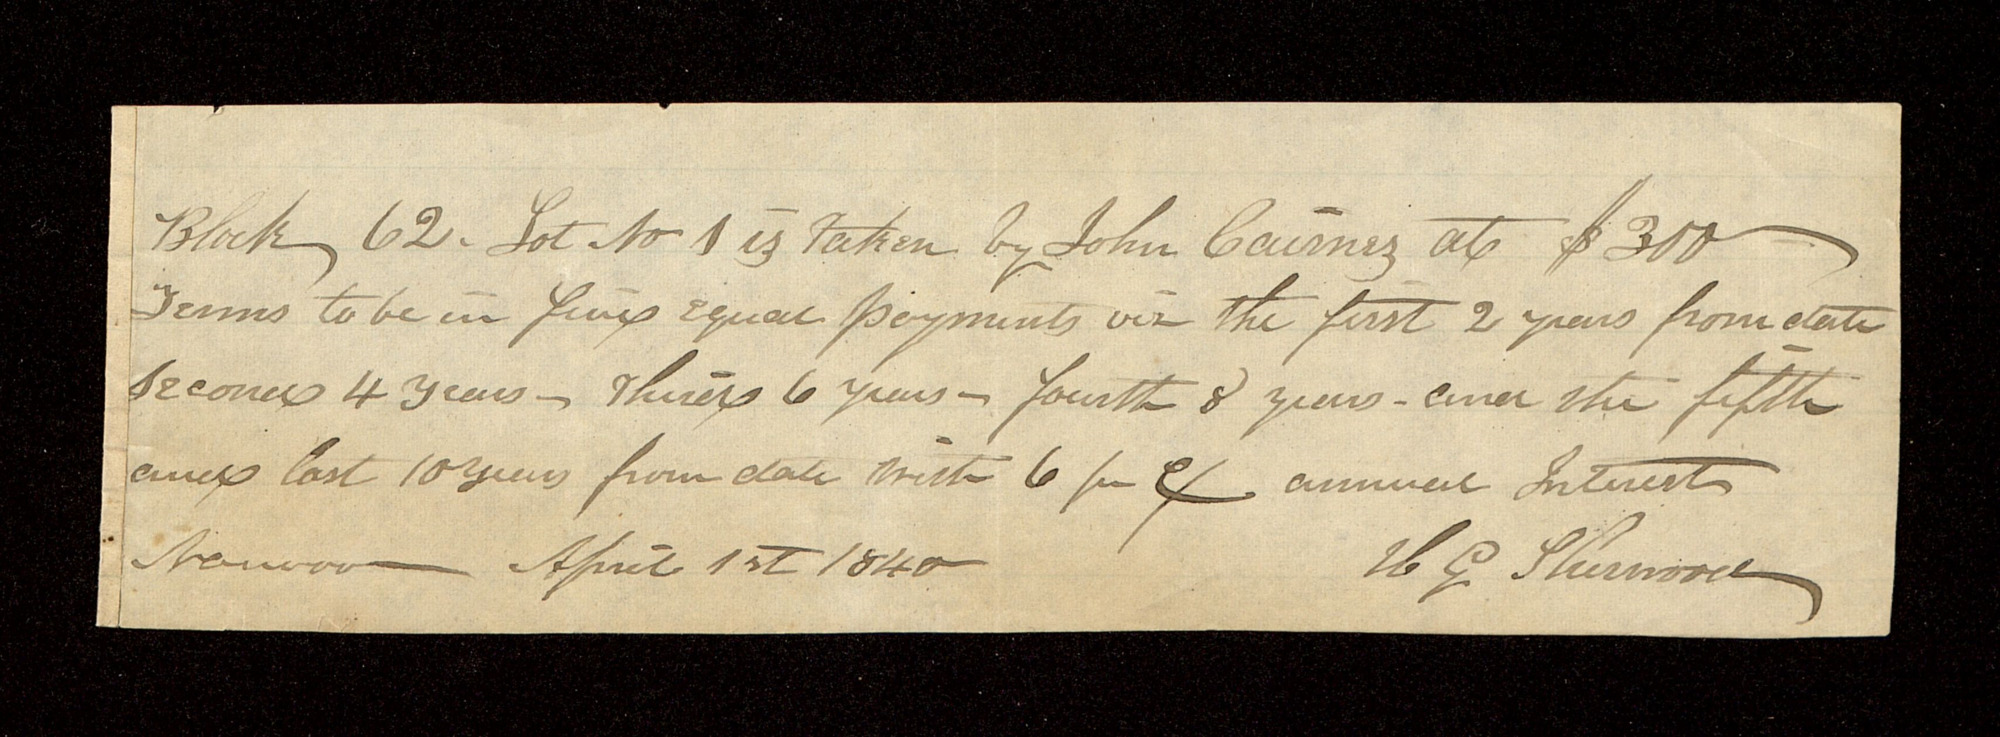 Block 62. Lot No 1 is taken by John Cairnes at $300
Terms to be in five equal payments viz the first 2 years from date
second 4 years - third 6 years - fourth 8 years - and the fifth
and last 10 years from date with 6 per ct annual Interest
Nauvoo April 1st 1840 H G Sherwood